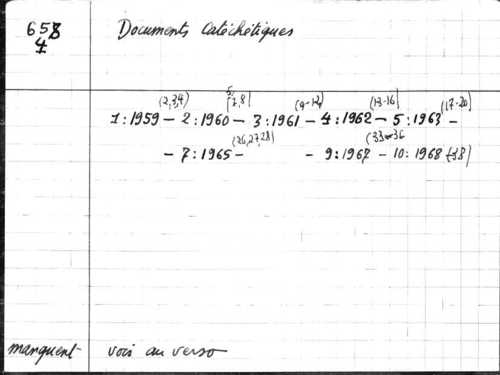 658 Documents Catéchétiques
4
(2,3,4) 5, (7,8) (9-12) (13-16) (17-20)
1:1959 – 2:1960 – 3:1961 – 4:1962 – 5:1963 –
(26,27,28) (33-36
– 7:1965 – – 9:1967 – 10:1968 (38)
manquent voir au verso